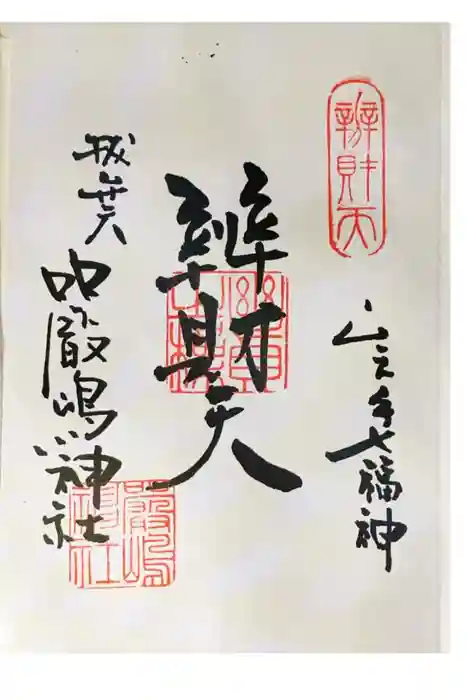 辨財天
山之手七福神
辨財天
抜弁天
嚴嶋神社
嚴嶋神社